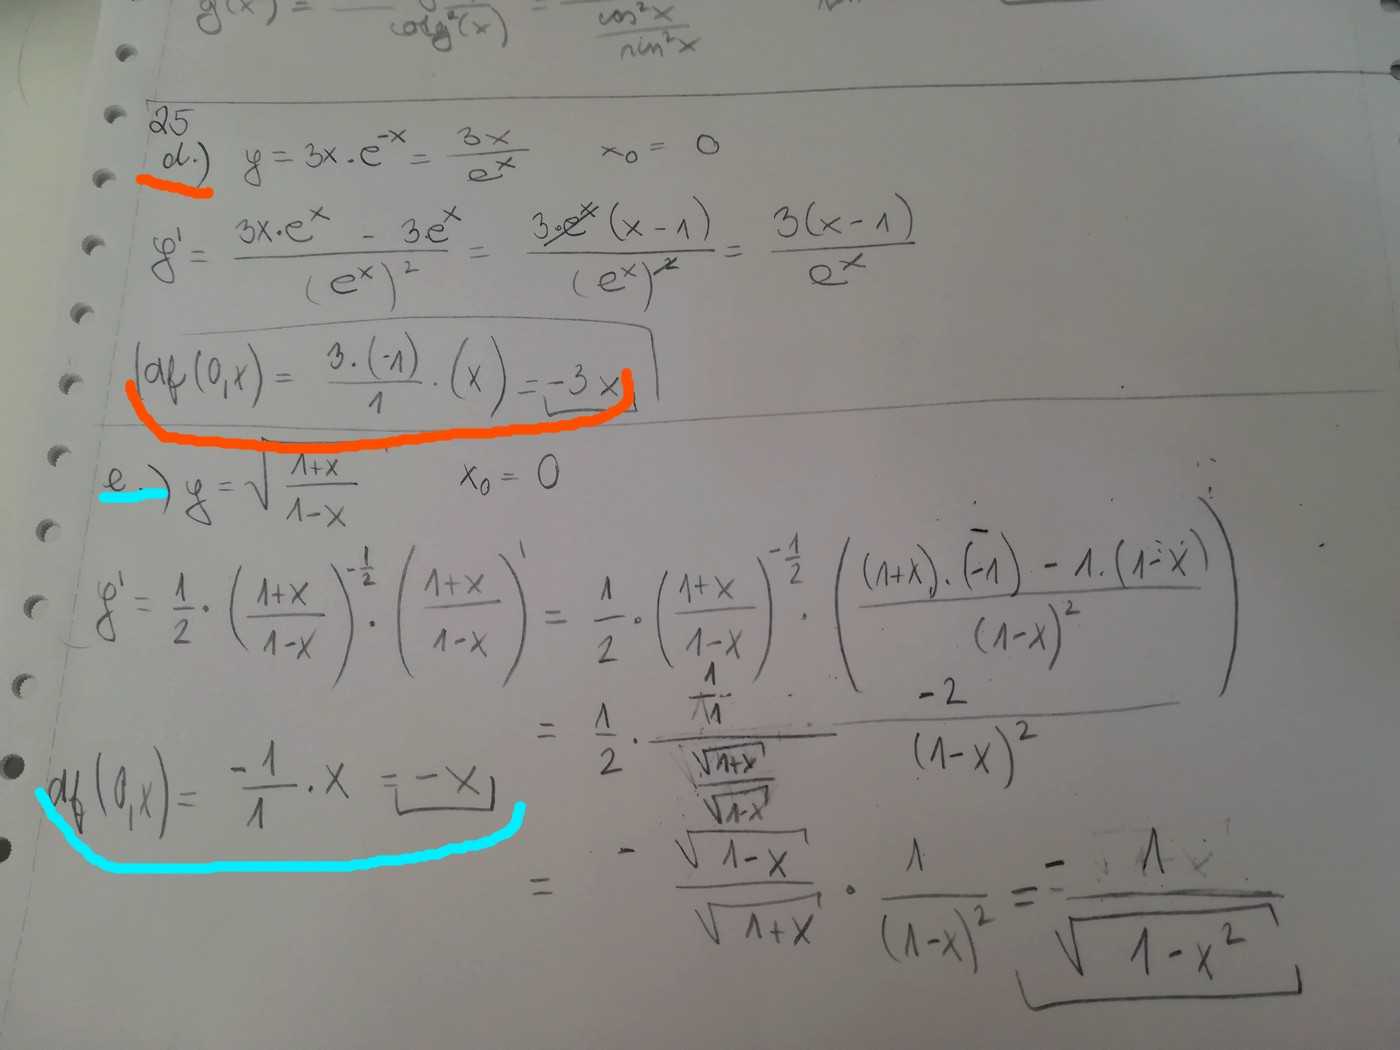 g(x) = = cos²x
cotg²(x) sin²x
25
d.) y = 3x·e^{-x} = \frac{3x}{e^x} x₀ = 0
y' = \frac{3x·e^x - 3e^x}{(e^x)^2} = \frac{3·e^x(x-1)}{(e^x)^2} = \frac{3(x-1)}{e^x}
df(0,x) = \frac{3·(-1)}{1}·(x) = -3x
e.) y = \sqrt{\frac{1+x}{1-x}} x₀ = 0
y' = \frac{1}{2}·(\frac{1+x}{1-x})^{-\frac{1}{2}}·(\frac{1+x}{1-x})' = \frac{1}{2}·(\frac{1+x}{1-x})^{-\frac{1}{2}}·(\frac{(1+x)·(-1) - 1·(1-x)}{(1-x)^2})
= \frac{1}{2}·\frac{1}{\frac{\sqrt{1+x}}{\sqrt{1-x}}}·\frac{-2}{(1-x)^2}
df(0,x) = \frac{-1}{1}·x = -x
= -\frac{\sqrt{1-x}}{\sqrt{1+x}}·\frac{1}{(1-x)^2} = -\frac{1}{\sqrt{1-x^2}}